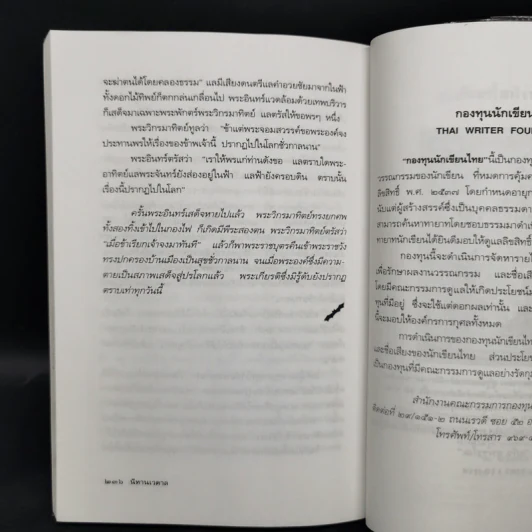 จะฆ่าตนได้โดยคลองธรรม" แลมีเสียงดนตรีแลคำอวยชัยมาจากในฟ้า
ทั้งดอกไม้ทิพย์ก็ตกกล่นเกลื่อนไป พระอินทร์แวดล้อมด้วยเทพบริวาร
ก็เสด็จมาเฉพาะพระพักตร์พระวิกรมาทิตย์ แลตรัสให้ขอพรๆ หนึ่ง
พระวิกรมาทิตย์ทูลว่า "ข้าแต่พระจอมสวรรค์ขอพระองค์จง
ประทานพรให้เรื่องของข้าพเจ้านี้ ปรากฏไปในโลกชั่วกาลนาน"
พระอินทร์ตรัสว่า "เราให้พรแก่ท่านดังขอ แลตราบใดพระ-
อาทิตย์แลพระจันทร์ยังส่องอยู่ในฟ้า แลฟ้ายังครอบดิน ตราบนั้น
เรื่องนี้ปรากฏไปในโลก"
ครั้นพระอินทร์เสด็จหายไปแล้ว พระวิกรมาทิตย์ทรงยกศพ
ทั้งสองทิ้งเข้าไปในกองไฟ ก็เกิดมีพีระสองตน พระวิกรมาทิตย์ตรัสว่า
"เมื่อข้าเรียกเจ้าจงมาทันที" แล้วก็พาพระราชบุตรคืนเข้าพระราชวัง
ทรงปกครองบ้านเมืองเป็นสุขชั่วกาลนาน จนเมื่อพระองค์ซึ่งมีความ-
ตายเป็นสภาพเสด็จสู่ปรโลกแล้ว พระเกียรติซึ่งมีรู้ดับยังปรากฏ
ตราบเท่าทุกวันนี้
๒๗๖ นิทานเวตาล
กองทุนนักเขียน
THAI WRITER FOU
"กองทุนนักเขียนไทย" นี้เป็นกองทุน
วรรณกรรมของนักเขียน ที่หมดการคุ้มค
ลิขสิทธิ์ พ.ศ. ๒๕๓๗ โดยกำหนดอายุก
นับแต่ผู้สร้างสรรค์ซึ่งเป็นบุคคลธรรมดา
สามารถค้นหาทายาทโดยชอบธรรมมาดำเ
ทายาทนักเขียนได้ยินดีมอบให้ดูแลลิขสิทธิ์
กองทุนนี้จะดำเนินการจัดหารายไ
เพื่อรักษาผลงานวรรณกรรม และชื่อเสีย
โดยมีคณะกรรมการดูแลให้เกิดประโยชน์
ทุนที่มีอยู่ ซึ่งจะใช้แต่ดอกผลเท่านั้น และ
นี้จะมอบให้องค์กรการกุศลทั้งหมด
การดำเนินการของกองทุนนักเขียนไท
และชื่อเสียงของนักเขียนไทย ส่วนประโยช
เป็นกองทุนที่มีคณะกรรมการดูแลอย่างรัดกุ
สำนักงานคณะกรรมการกองทุน
ติดต่อที่ ๒๙/๑๕๑-๒ ถนนเรวดี ซอย ๕๒ อ
โทรศัพท์/โทรสาร ๙๖๙-